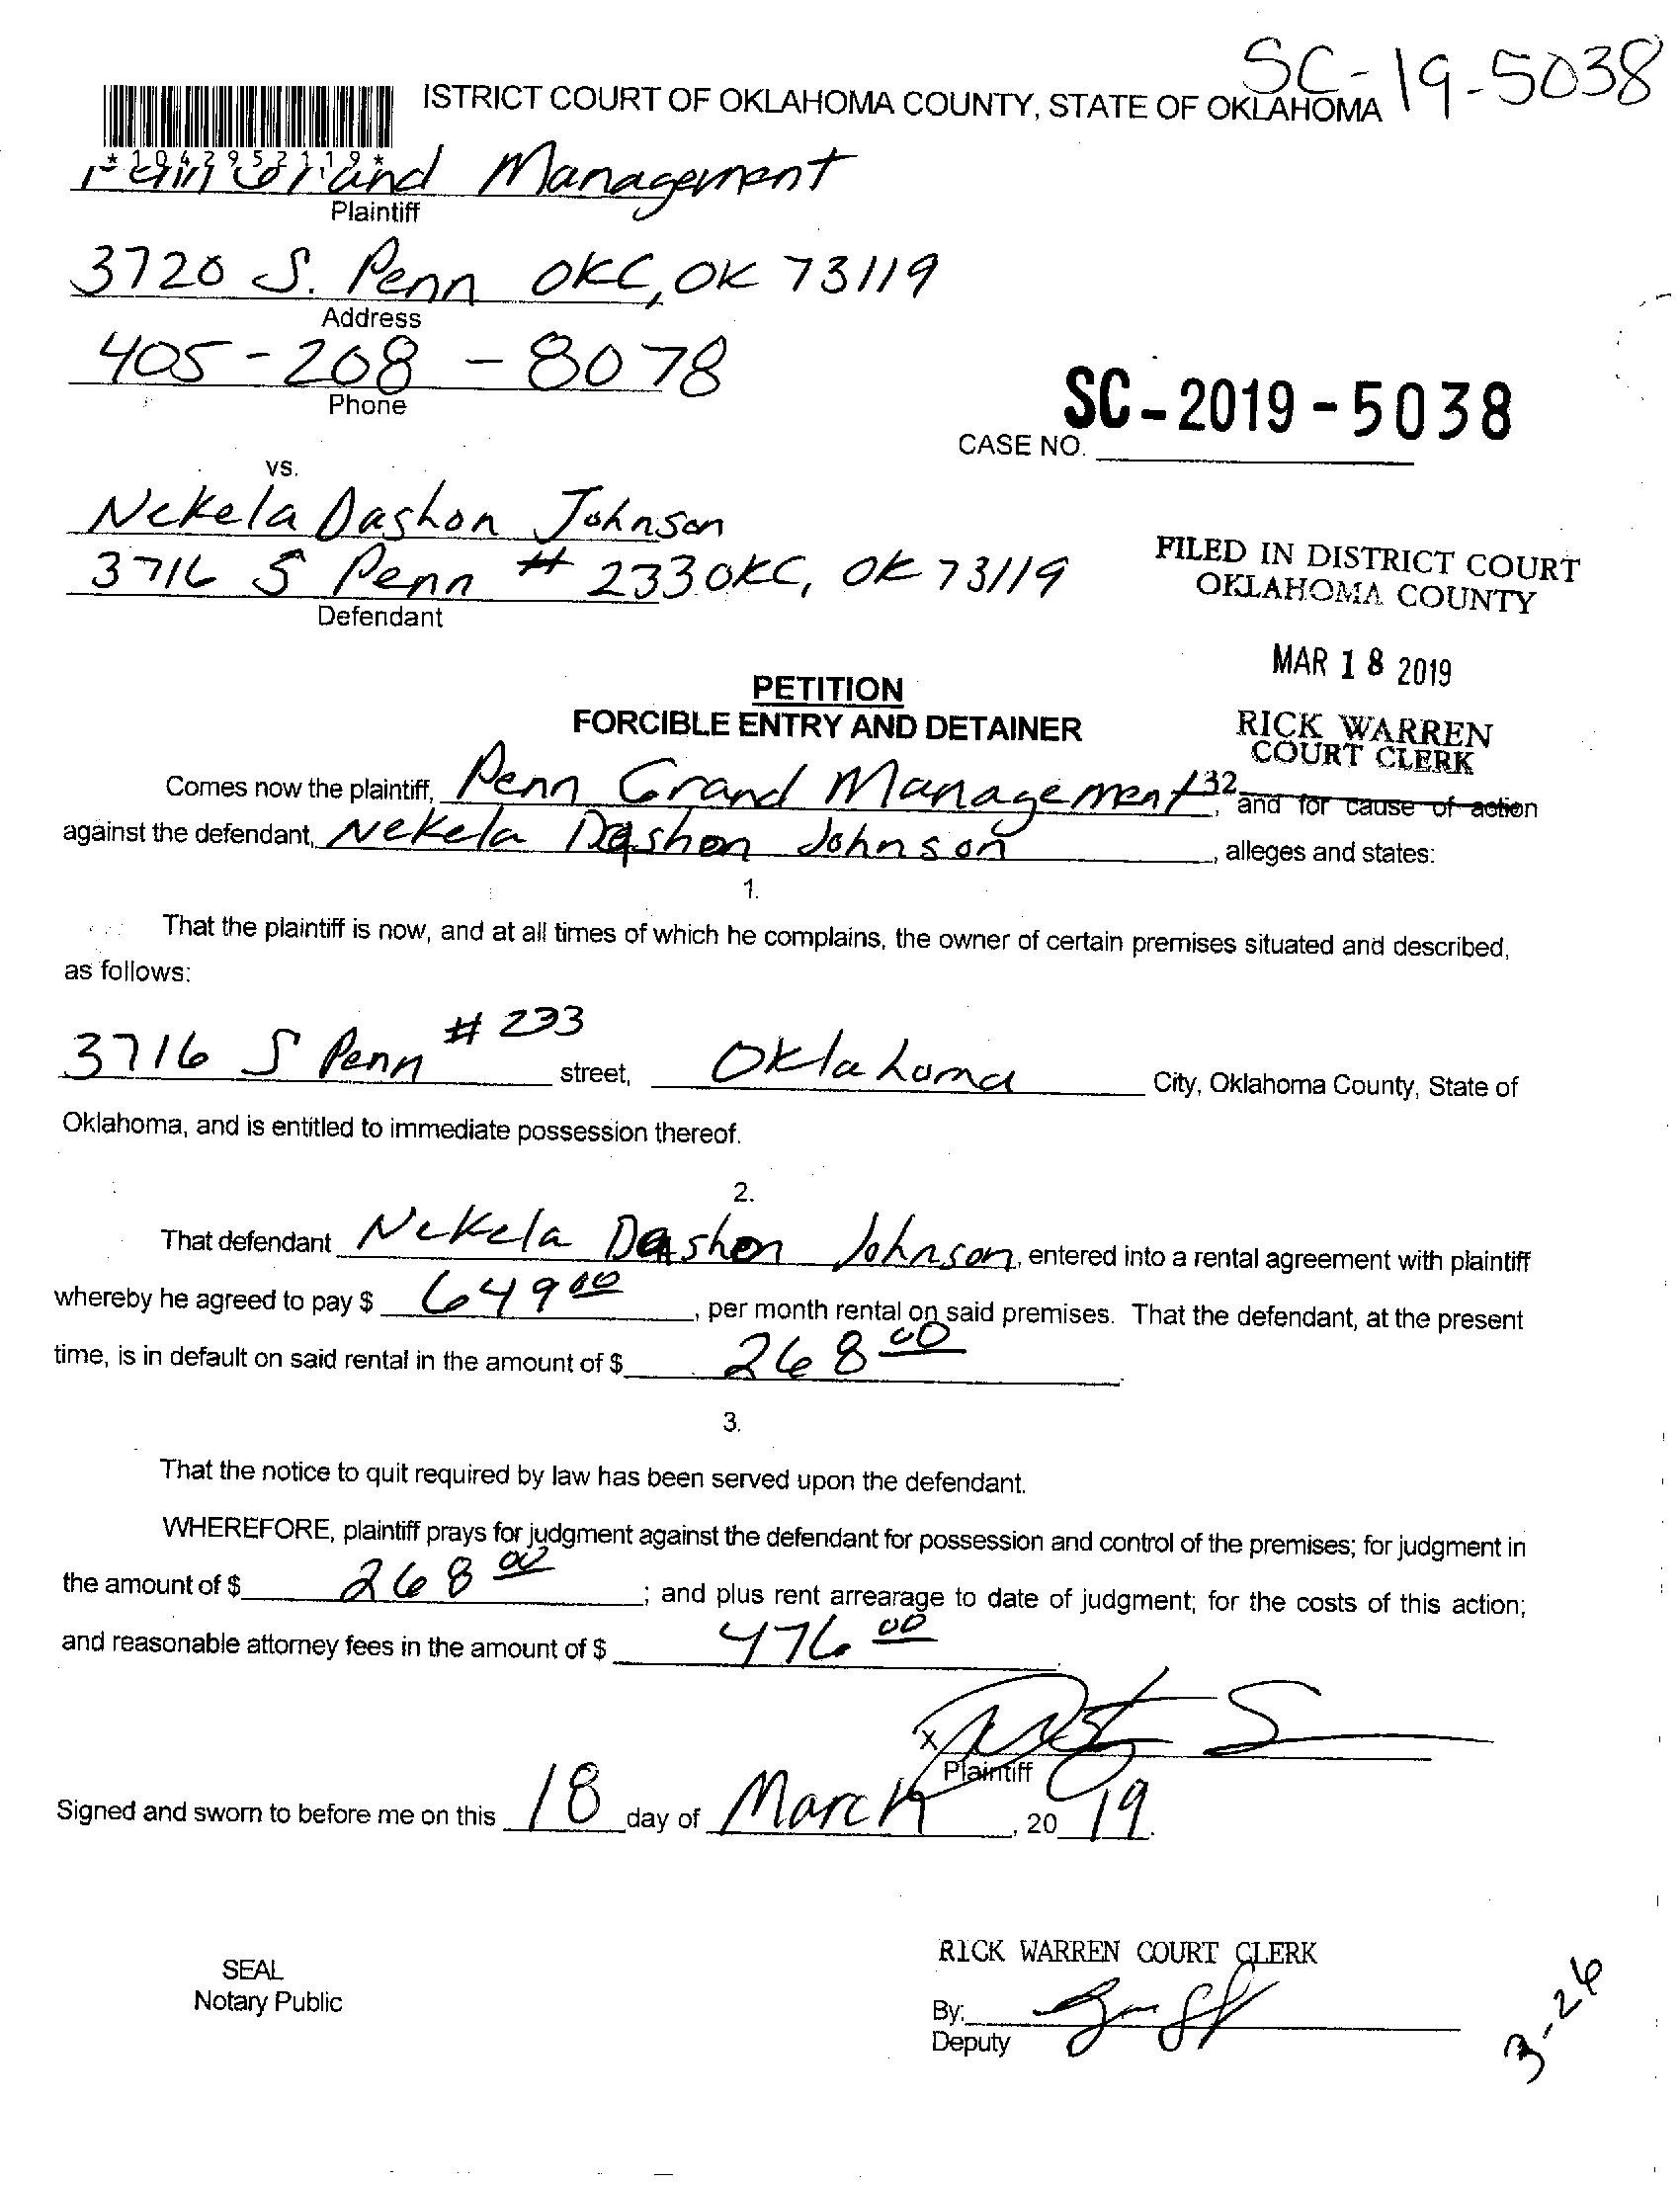 SC-19-5038
ISTRICT COURT OF OKLAHOMA COUNTY, STATE OF OKLAHOMA
*1042952119*
Penn Grand Management
Plaintiff
3720 S. Penn OKC, OK 73119
Address
405-208-8078
Phone
SC-2019-5038
CASE NO.
vs.
Nekela Dashon Johnson
3716 S Penn # 233 OKC, OK 73119
Defendant
FILED IN DISTRICT COURT
OKLAHOMA COUNTY
MAR 18 2019
RICK WARREN
COURT CLERK
PETITION
FORCIBLE ENTRY AND DETAINER
132
Comes now the plaintiff, Penn Grand Management, and for cause of action
against the defendant, Nekela Dashon Johnson, alleges and states:
1.
That the plaintiff is now, and at all times of which he complains, the owner of certain premises situated and described,
as follows:
3716 S Penn # 233 street, Oklahoma City, Oklahoma County, State of
Oklahoma, and is entitled to immediate possession thereof.
2.
That defendant Nekela Dashon Johnson, entered into a rental agreement with plaintiff
whereby he agreed to pay $ 649 00, per month rental on said premises. That the defendant, at the present
time, is in default on said rental in the amount of $ 268 00.
3.
That the notice to quit required by law has been served upon the defendant.
WHEREFORE, plaintiff prays for judgment against the defendant for possession and control of the premises; for judgment in
the amount of $ 268 00; and plus rent arrearage to date of judgment; for the costs of this action;
and reasonable attorney fees in the amount of $ 476 00.
X
Plaintiff
Signed and sworn to before me on this 18 day of March, 20 19.
SEAL
Notary Public
RICK WARREN COURT CLERK
By:
Deputy
3-26